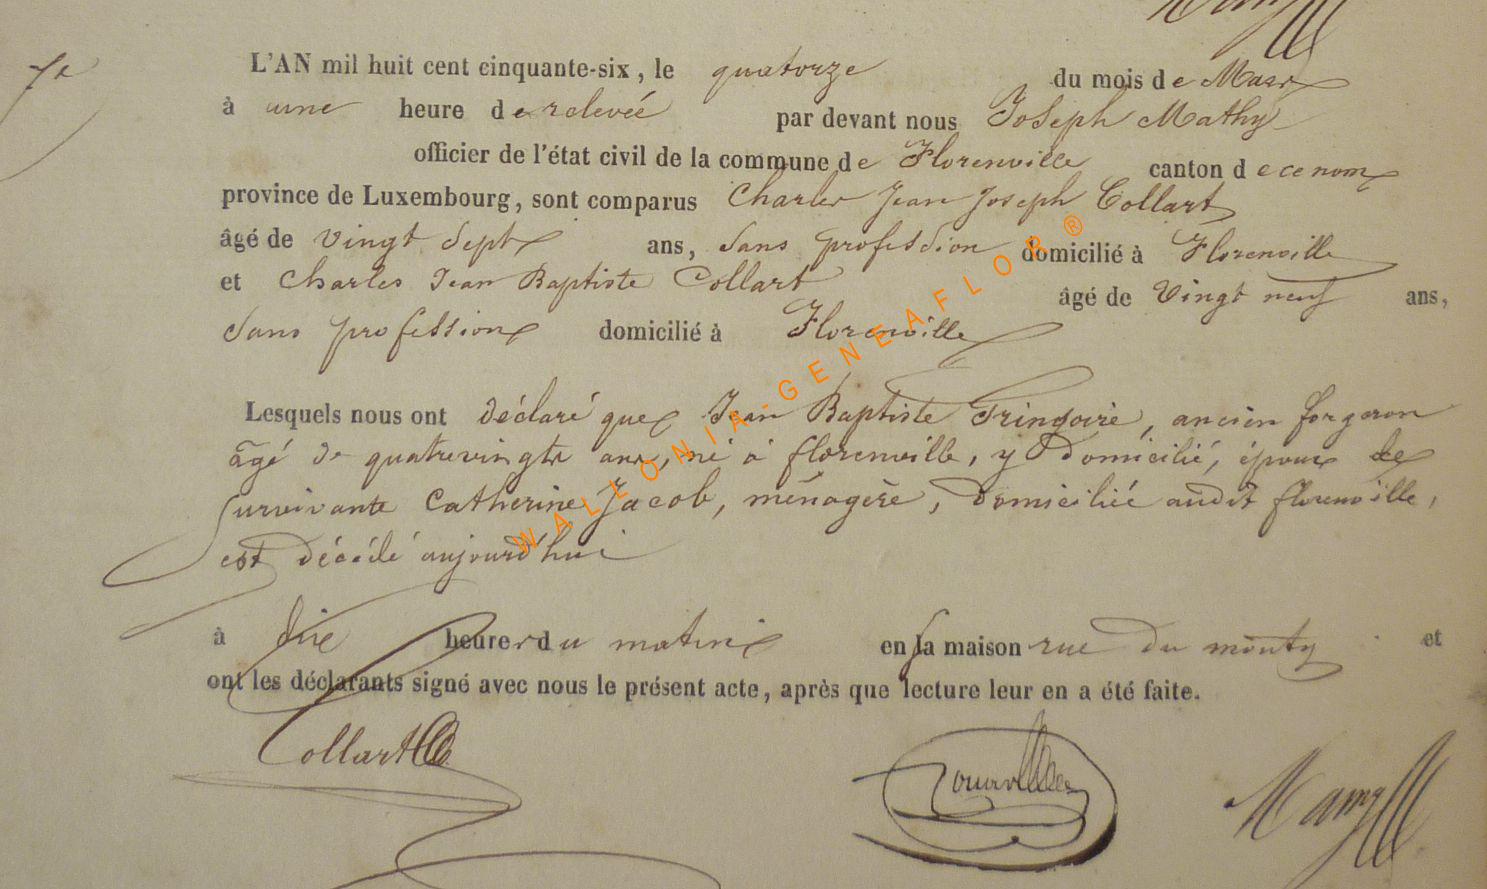 7e
L'AN mil huit cent cinquante-six, le quatorze du mois de Mars
à une heure de relevée par devant nous Joseph Mathy
officier de l'état civil de la commune de Florenville canton de ce nom
province de Luxembourg, sont comparus Charles Jean Joseph Collart
âgé de vingt Sept ans, Sans profession domicilié à Florenville
et Charles Jean Baptiste Collart âgé de Vingt neuf ans,
Sans profession domicilié à Florenville
Lesquels nous ont déclaré que Jean Baptiste Gringoire, ancien forgeron
âgé de quatrevingts ans, né à florenville, y Domicilié, époux de
Survivante Catherine Jacob, ménagère, Domiciliée audit florenville,
est décédé aujourd'hui
à dix heures du matin en Sa maison rue du monty et
ont les déclarants signé avec nous le présent acte, après que lecture leur en a été faite.
Collart
WALLONIA-GENEAFLOR®